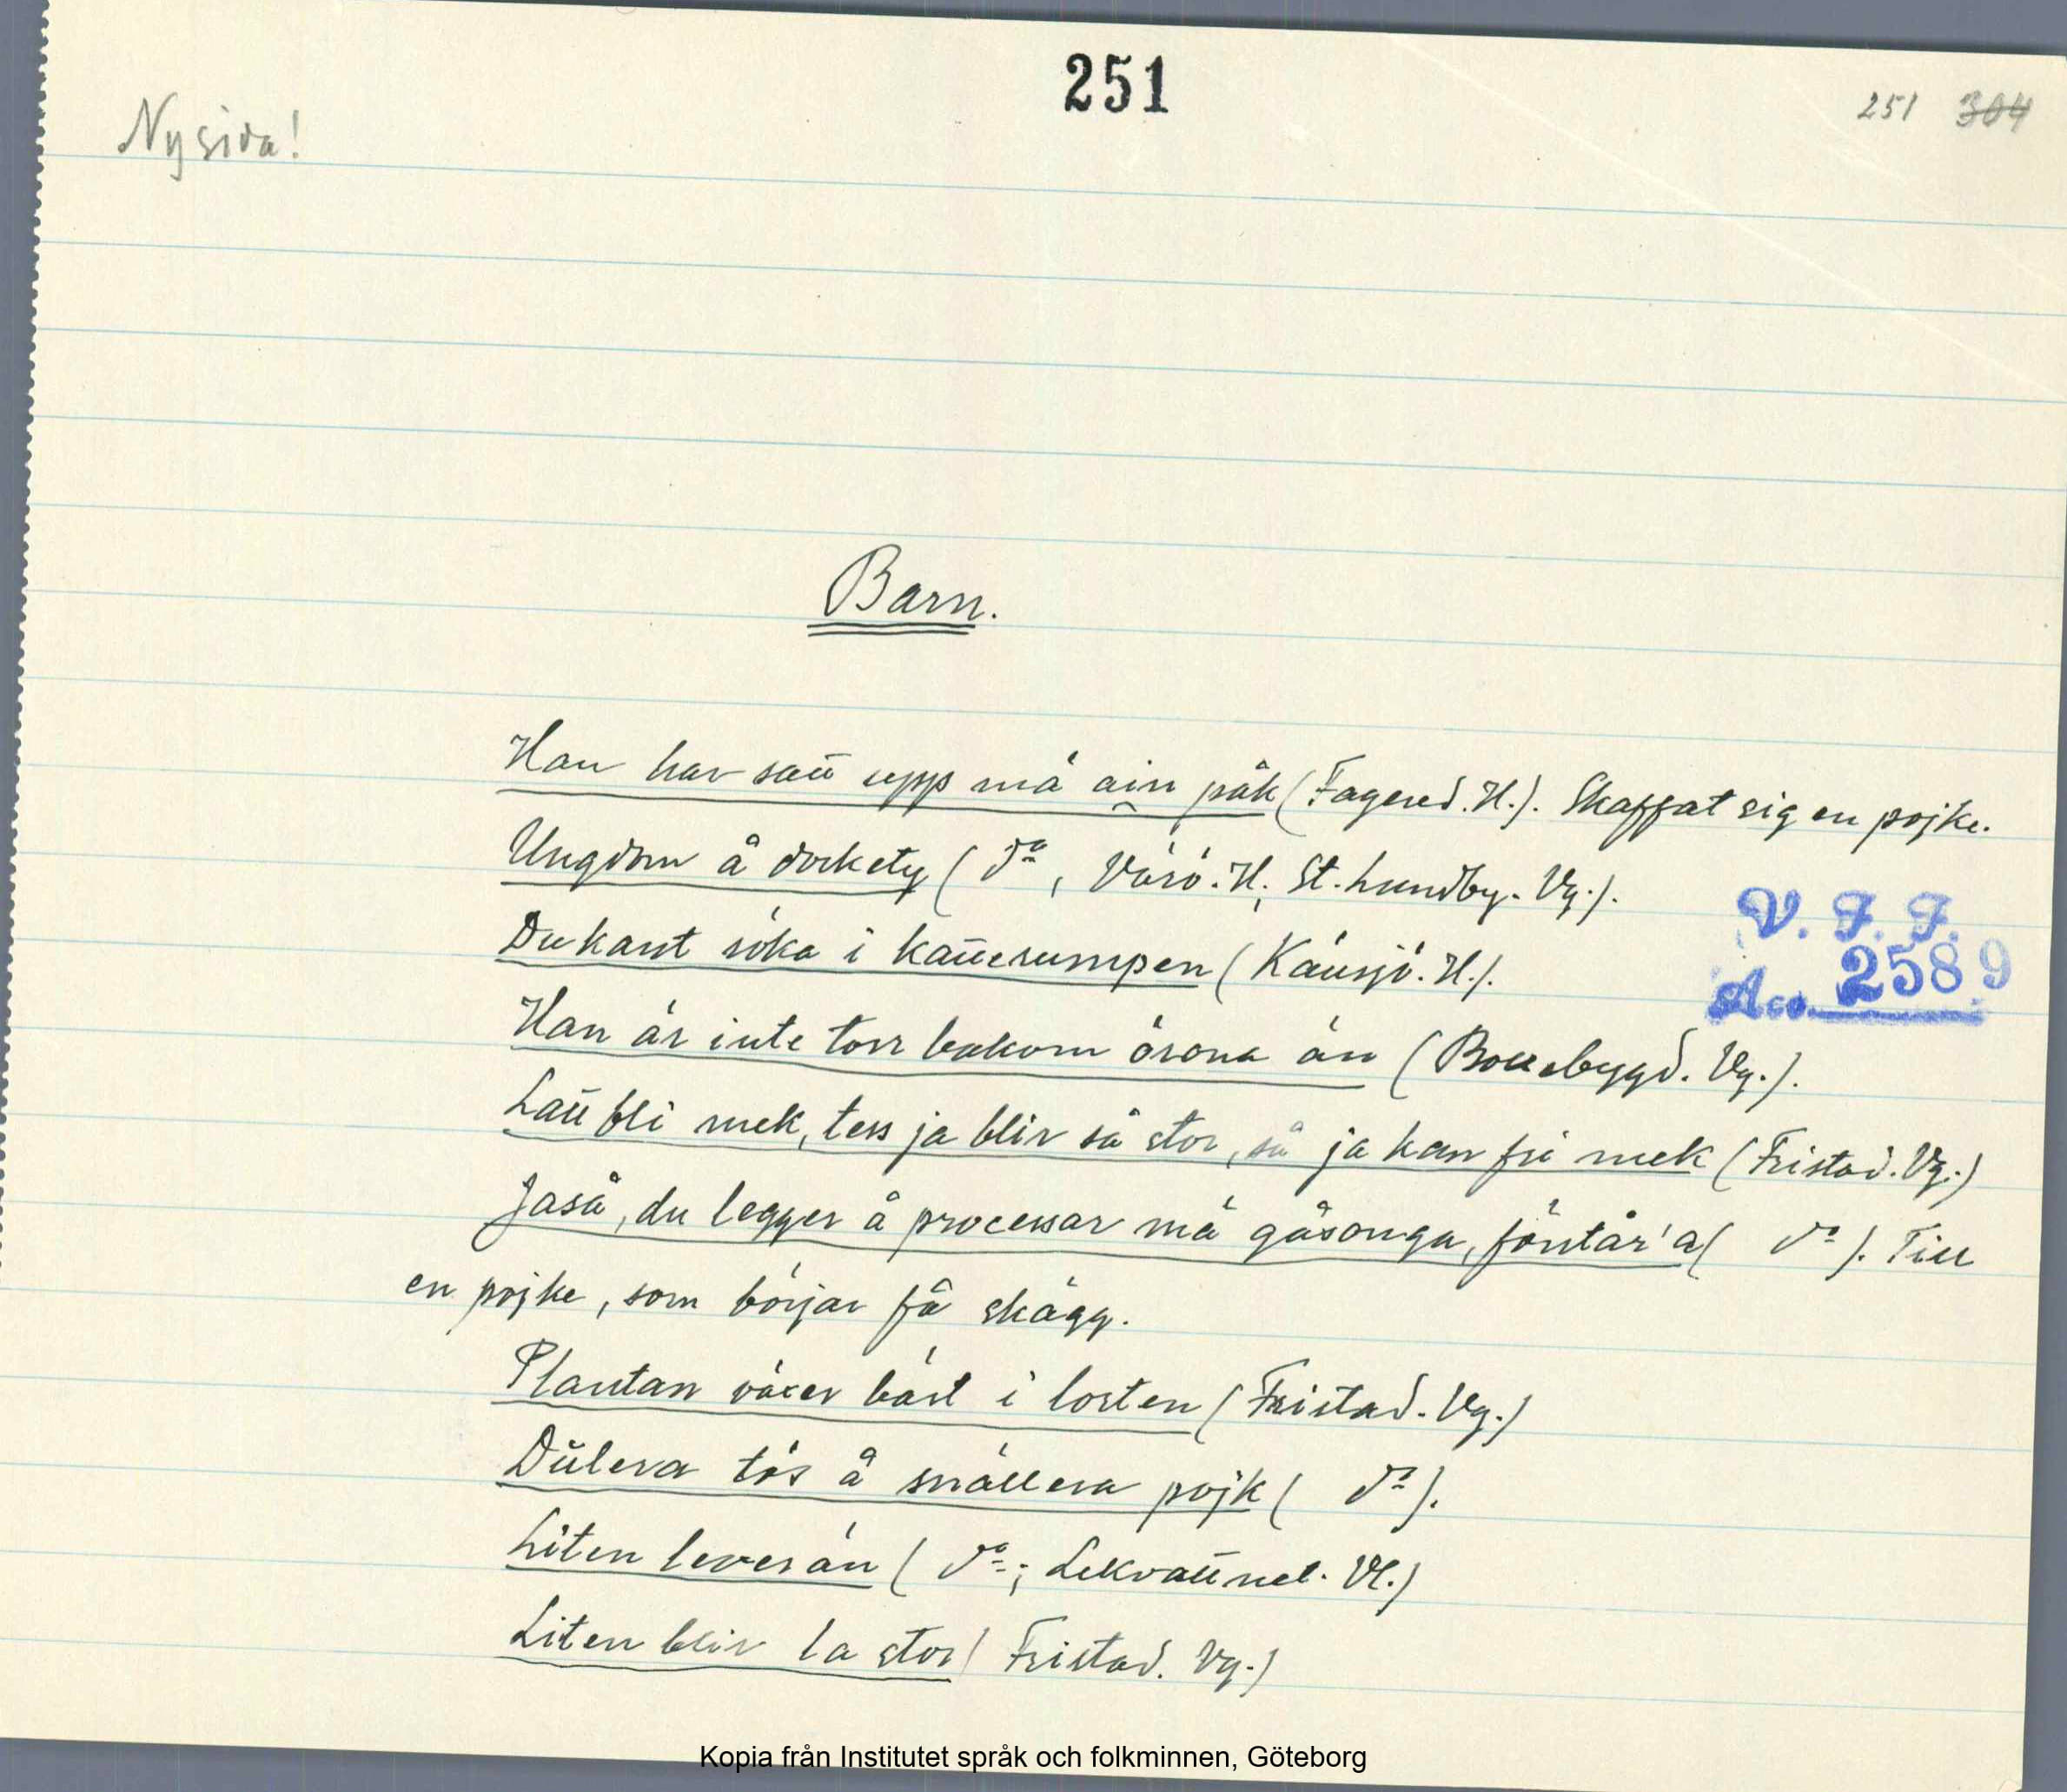 251
251 304
Ny sida!
Barn.
Han har satt upp mä ain påk (Fagered. H.). Skaffat sig en pojke.
Ungdom å dorkety (do, Värö. H; St. Lundby. Vg.).
Du kant söka i kattesumpen (Känsjö. H.).
V. F. F.
Acc. 2589
Han är inte torr bakom örona än (Bollebygd. Vg.).
Latt bli mek, tess ja blir så stor, så ja kan fri mek (Fristad. Vg.)
Jaså, du legger å processar mä gåsonga, föntår'a ( do ). Till
en pojke, som börjar få skägg.
Plantan växer bäst i lorten (Fristad. Vg.)
Dulera tös å snällera pojk ( do ).
Liten lever än ( do; Lekvattnet. Vl.)
Liten blir la stor (Fristad. Vg.)
Kopia från Institutet språk och folkminnen, Göteborg